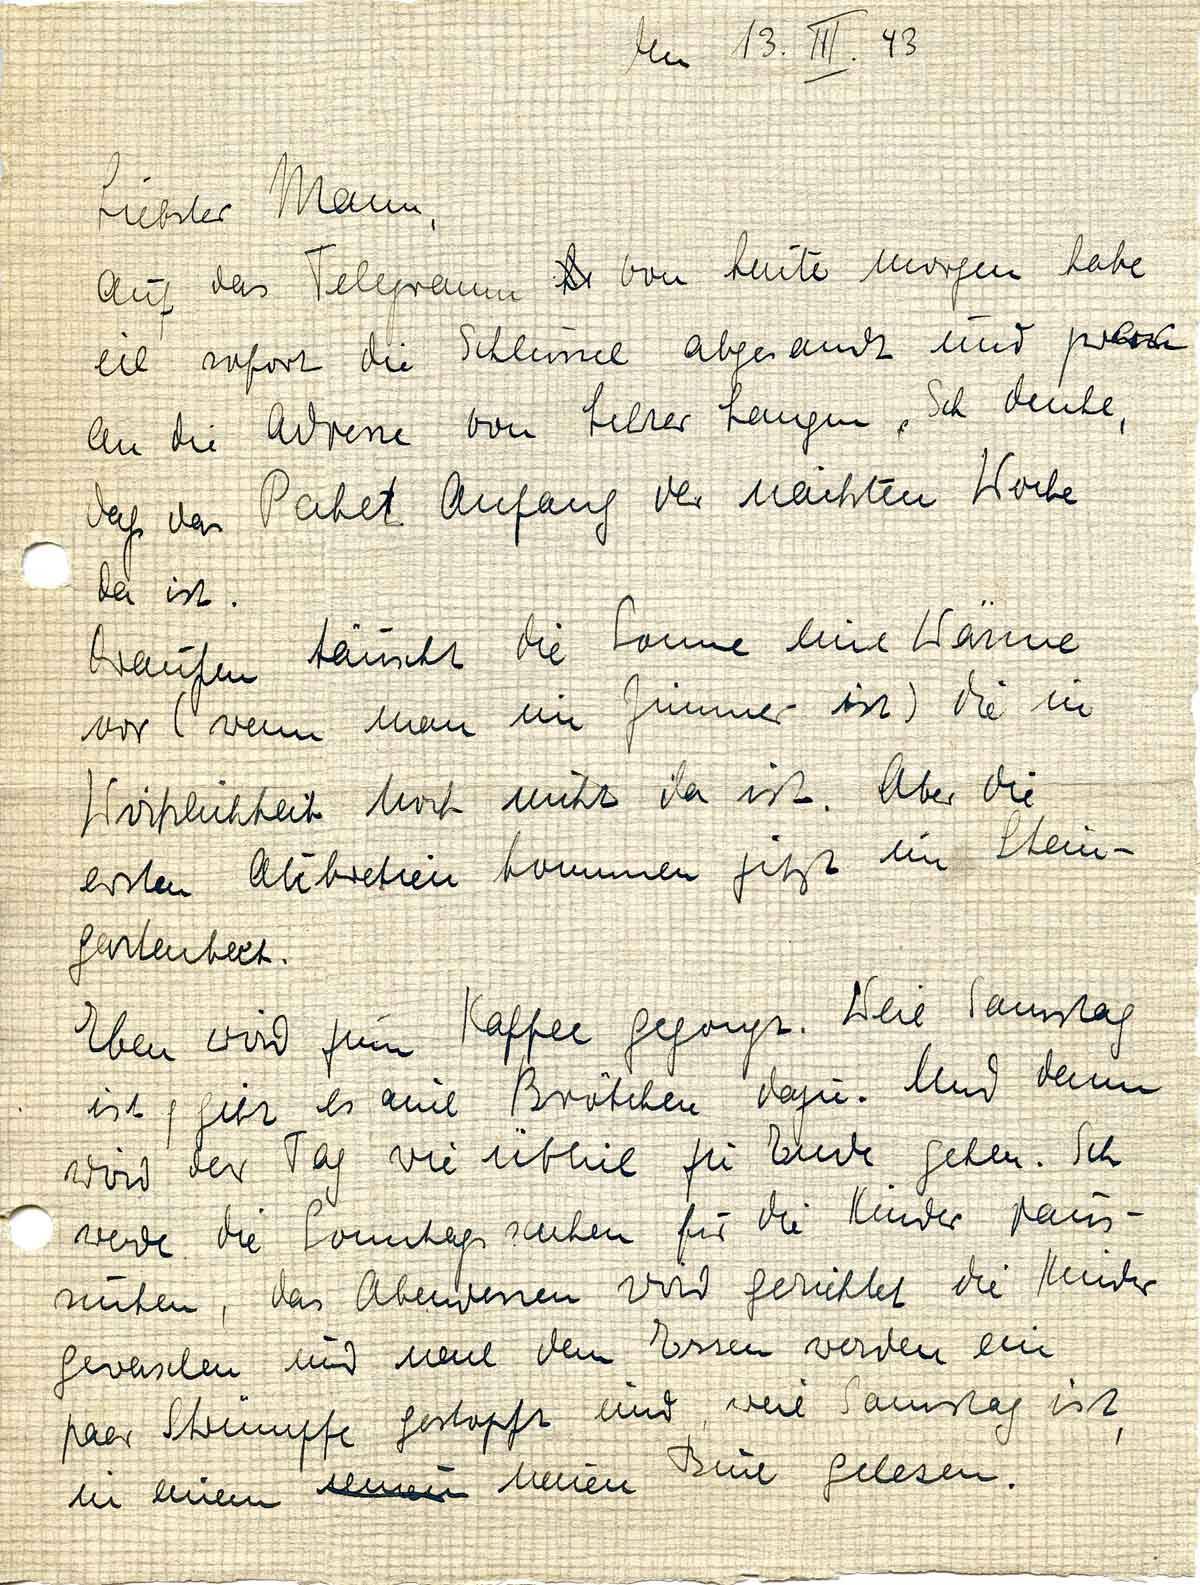 den 13. III. 43
Liebster Mann,
auf das Telegramm von heute morgen habe
ich sofort die Schlüssel abgesandt und
an die Adresse von Lehrer Langen. Ich denke,
daß das Paket Anfang der nächsten Woche
da ist.
Draußen täuscht die Sonne eine Wärme
vor (wenn man im Zimmer ist) die in
Wirklichkeit noch nicht da ist. Aber die
ersten Aubretien kommen jetzt im Stein-
gartenbeet.
Eben wird zum Kaffee gegongt. Weil Samstag
ist, gibt es auch Brötchen dazu. Und dann
wird der Tag wie üblich zu Ende gehen. Ich
werde die Sonntagssachen für die Kinder raus-
suchen, das Abendessen wird gerichtet die Kinder
gewaschen und nach dem Essen werden ein
paar Strümpfe gestopft und, weil Samstag ist,
in einem neuen Buch gelesen.